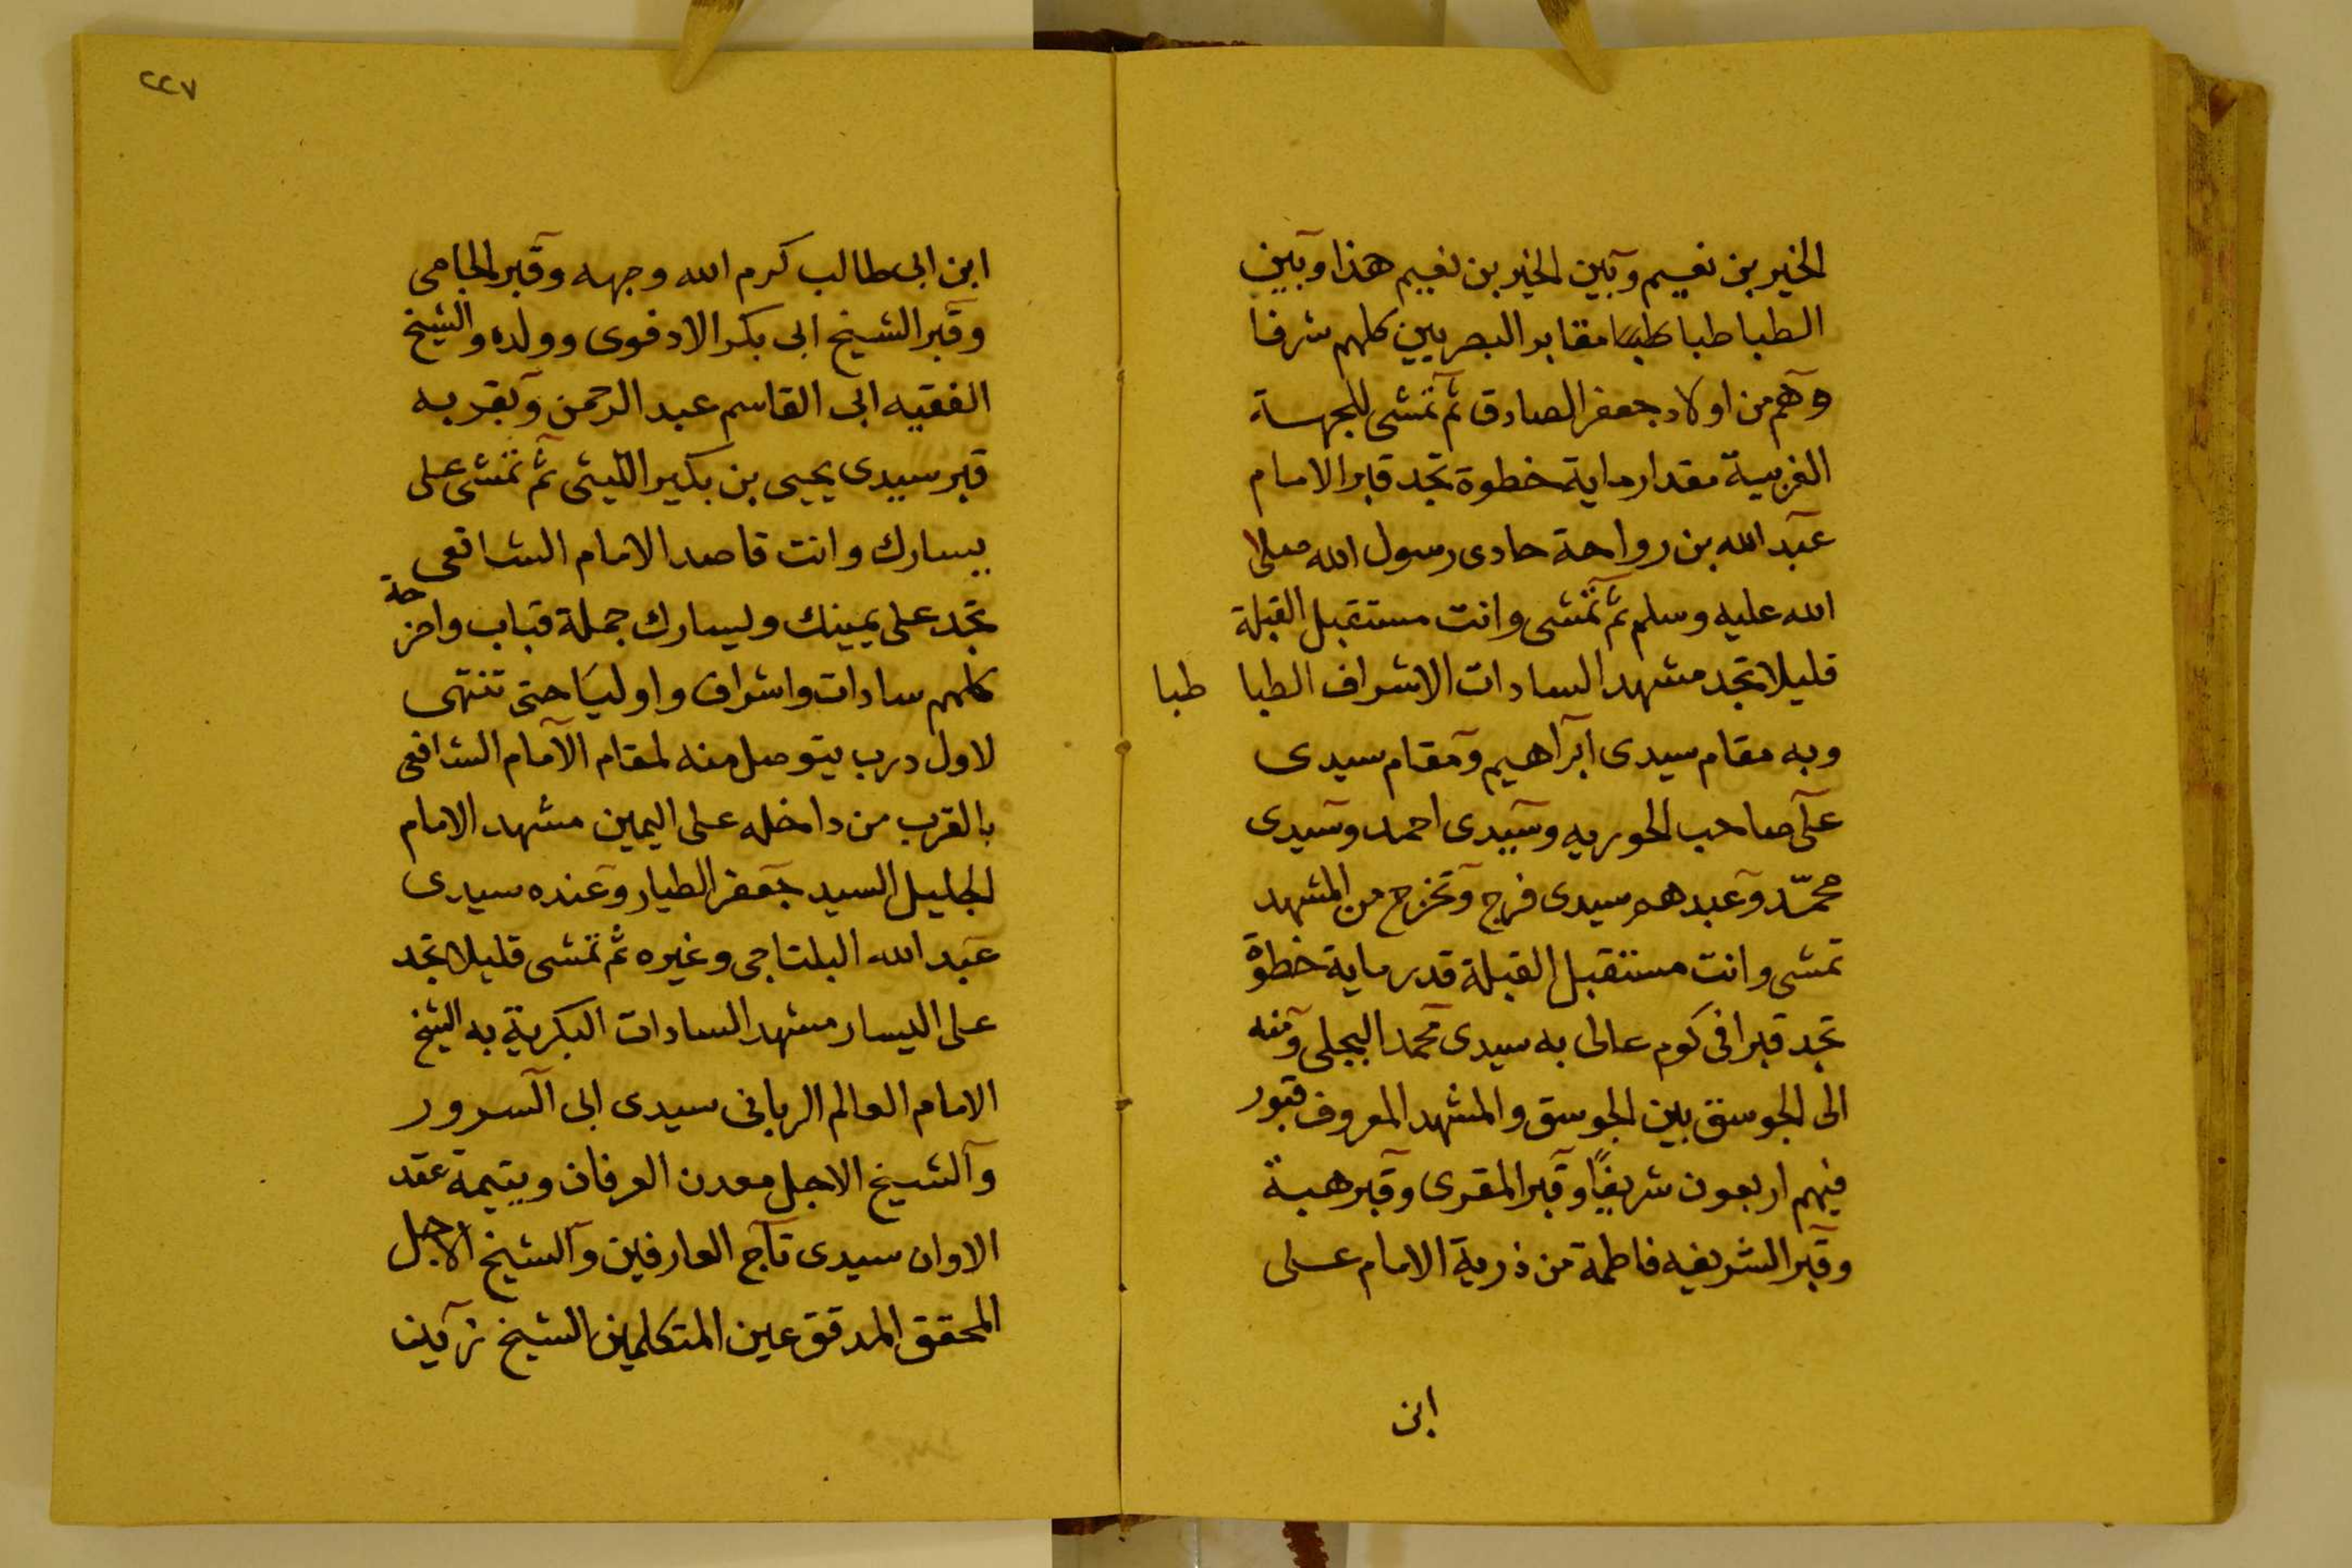 الخير بن نعيم وبين الخير بن نعيم هذا وبين
الطباطبا طبا مقابر البصريين كلهم شرفا
وهم من اولاد جعفر الصادق ثم تمشى للجهة
الغربية مقدار ماية خطوة تجد قبر الامام
عبد الله بن رواحة حادى رسول الله صلى
الله عليه وسلم ثم تمشى وانت مستقبل القبلة
قليلا تجد مشهد السادات الاشراف الطبا طبا
وبه مقام سيدى ابراهيم ومقام سيدى
على صاحب الحوريه وسيدى احمد وسيدى
محمد وعبدهم سيدى فرج وتخرج من المشهد
تمشى وانت مستقبل القبلة قدر ماية خطوة
تجد قبرا فى كوم عالى به سيدى محمد البجلى ومنه
الى الجوسق بين الجوسق والمشهد المعروف قبور
فيهم اربعون شريفًا وقبر المقرى وقبر هبة
وقبر الشريفه فاطمة من ذرية الامام على
ابن
٢٢٧
ابن ابى طالب كرم الله وجهه وقبر الجامى
وقبر الشيخ ابى بكر الادفوى وولده والشيخ
الفقيه ابى القاسم عبد الرحمن وبقربه
قبر سيدى يحيى بن بكير الليثى ثم تمشى على
يسارك وانت قاصد الامام الشافعى
تجد على يمينك وليسارك جملة قباب واضرحة
كلهم سادات واشراف واوليا حتى تنتهى
لاول درب يتوصل منه لمقام الامام الشافعى
بالقرب من داخله على اليمين مشهد الامام
الجليل السيد جعفر الطيار وعنده سيدى
عبد الله البلتاجى وغيره ثم تمشى قليلا تجد
على اليسار مشهد السادات البكرية به الشيخ
الامام العالم الربانى سيدى ابى السرور
والشيخ الاجل معدن العرفان ويتيمة عقد
الاوان سيدى تاج العارفين والشيخ الاجل
المحقق المدقق عين المتكلمين الشيخ زين